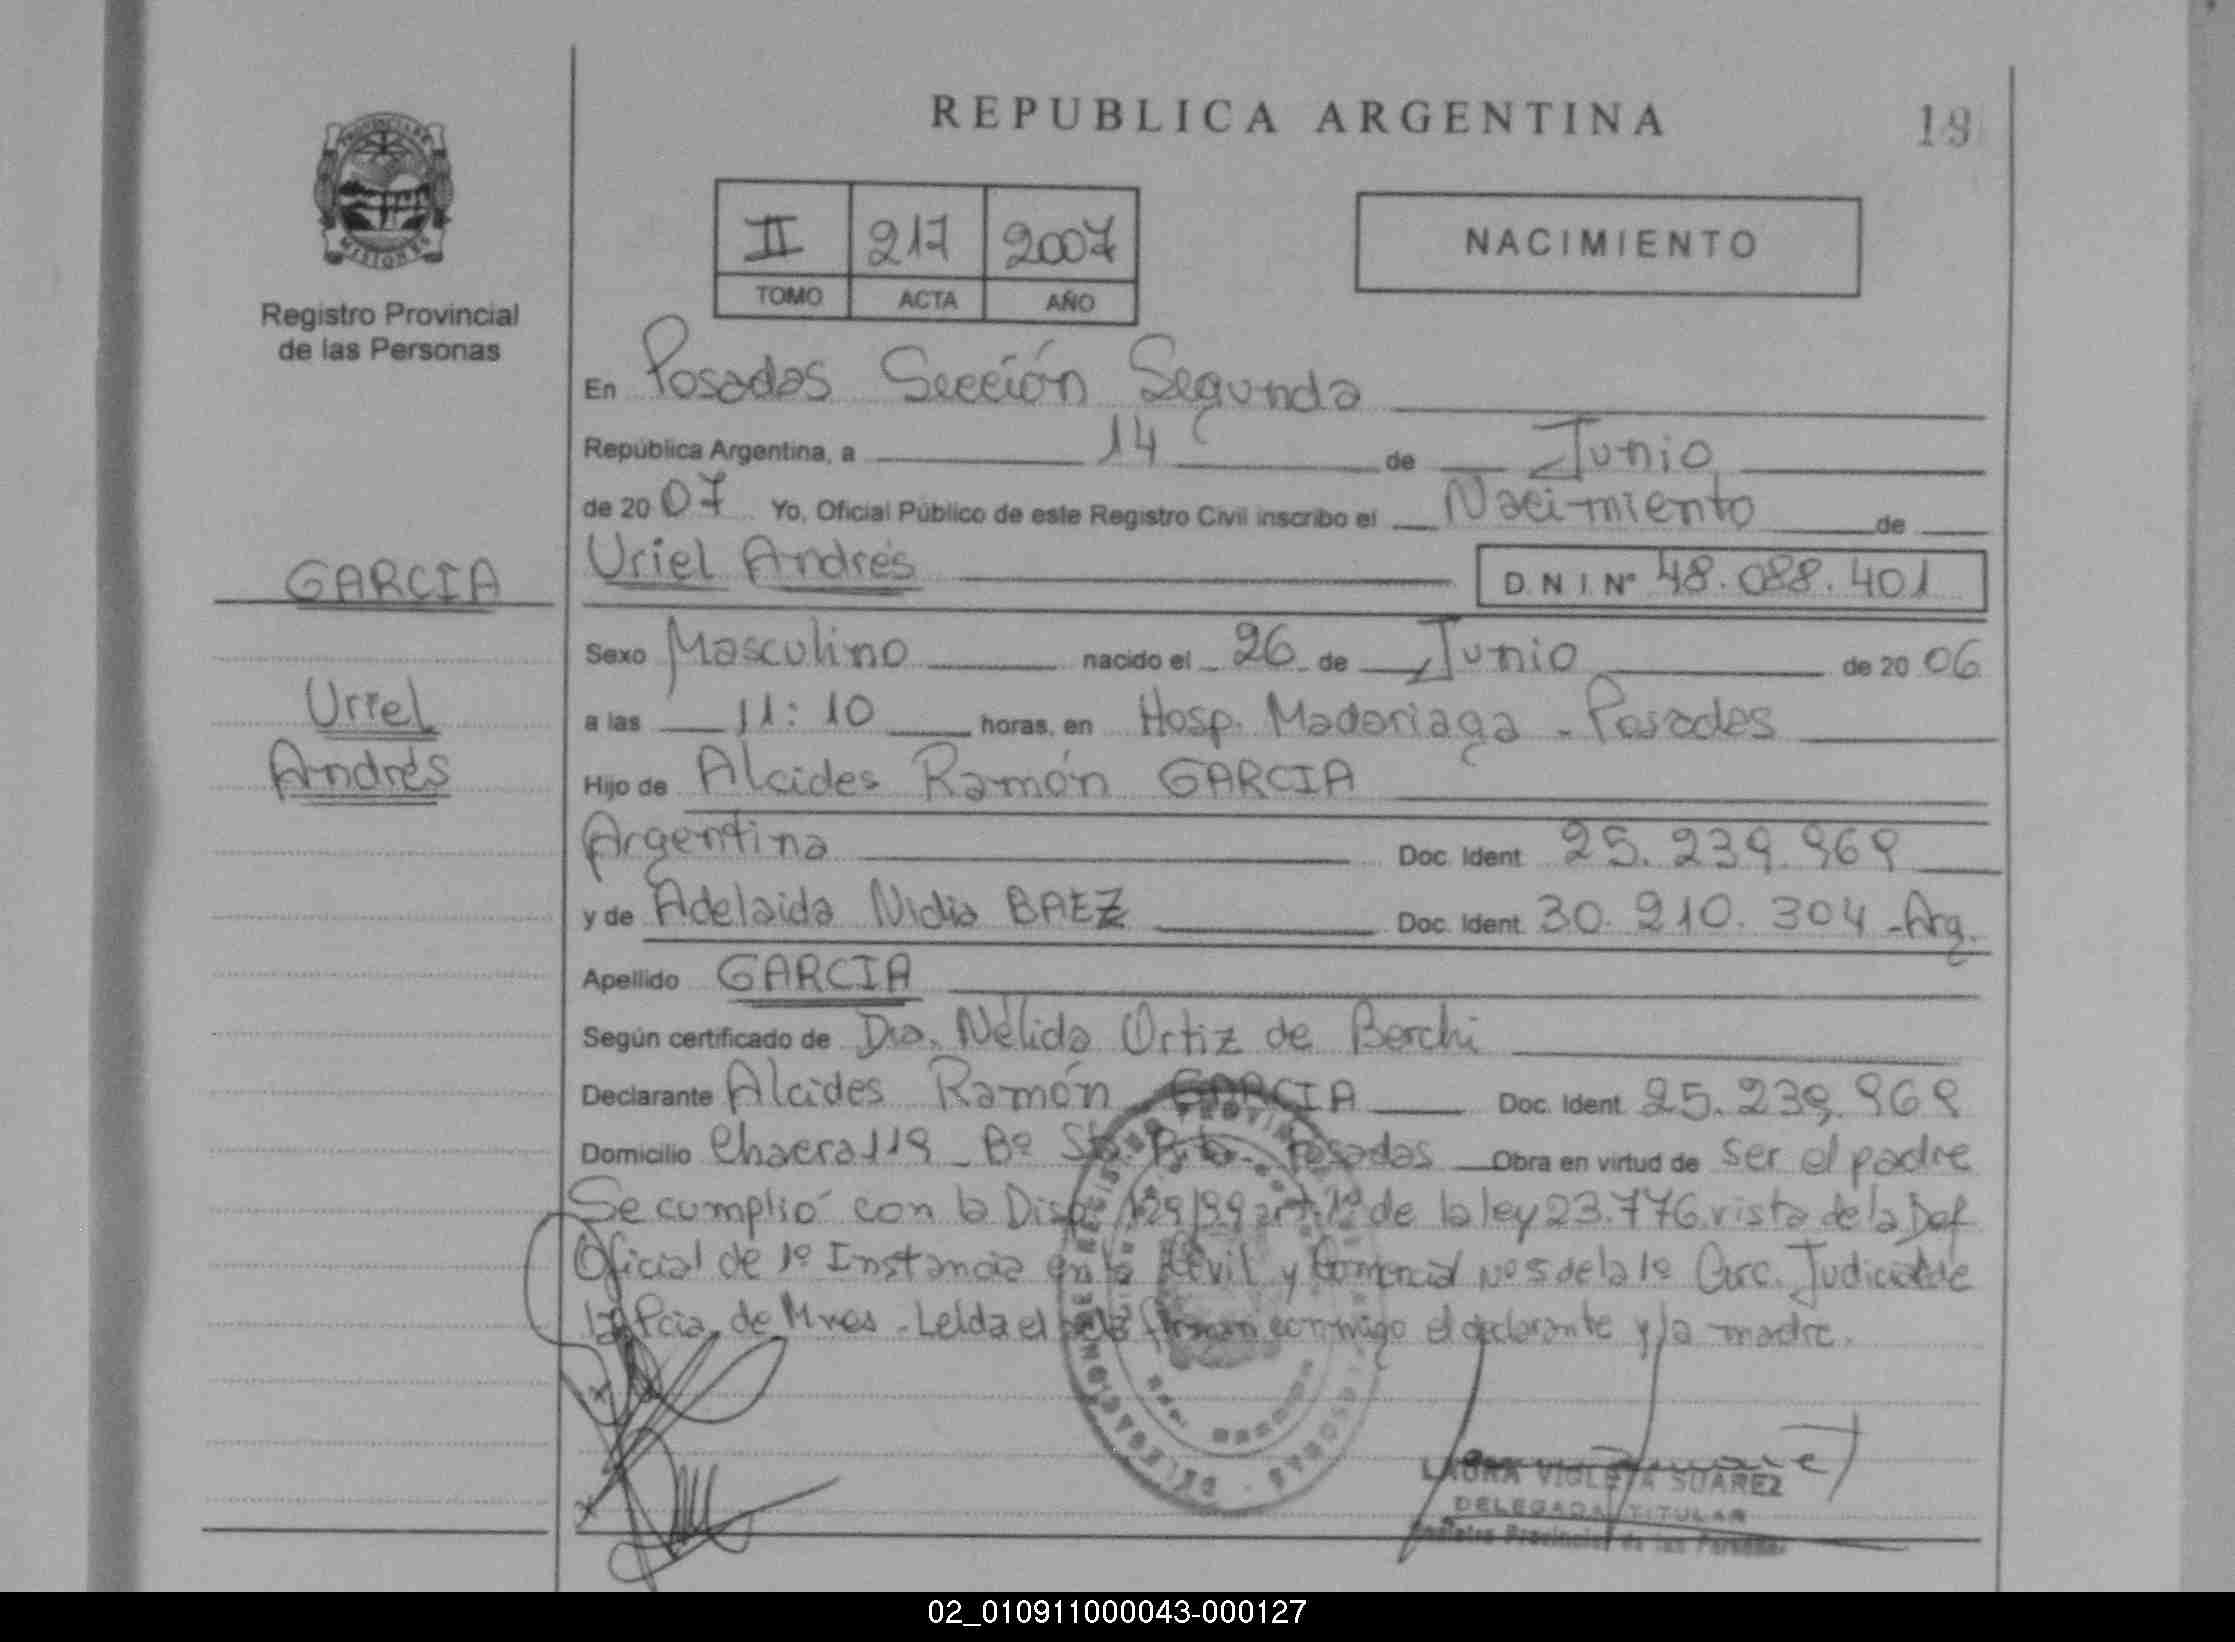 REPUBLICA ARGENTINA
19
PROVINCIA DE
MISIONES
Registro Provincial
de las Personas
II 217 2007
TOMO ACTA AÑO
NACIMIENTO
En Posadas Sección Segunda
República Argentina, a 14 de Junio
de 2007 Yo, Oficial Público de este Registro Civil inscribo el Nacimiento de
GARCIA
Uriel Andrés D.N.I. Nº 48.088.401
Sexo Masculino nacido el 26 de Junio de 2006
Uriel
a las 11:10 horas, en Hosp. Madariaga - Posadas
Andrés
Hijo de Alcides Ramón GARCIA
Argentina Doc. Ident. 25.239.969
y de Adelaida Nidia BAEZ Doc. Ident. 30.210.304 - Arg.
Apellido GARCIA
Según certificado de Dra. Nélida Ortiz de Berchi
Declarante Alcides Ramón GARCIA Doc. Ident. 25.239.969
Domicilio Chacra 119 - Bº Sta. Posadas Obra en virtud de ser el padre
Se cumplió con la Disp. 129/99 art. 1º de la ley 23.776 vista de la Def.
Oficial de 1º Instancia en lo Civil y Comercial Nº 5 de la 1º Circ. Judicial de
la Pcia. de Mnes. - Leída el acta firman conmigo el declarante y la madre.
LAURA VIOLETA SUAREZ
DELEGADA TITULAR
Registro Provincial de las Personas
02_010911000043-000127